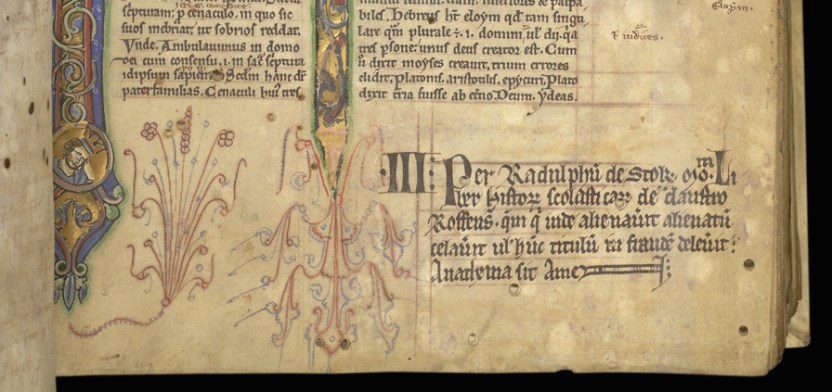 septuram: p cenaculo. in quo sic
suos inebriat; ut sobrios reddat.
Vnde. Ambulauimus in domo
dei cum consensu. i. in sac septura
idipsum sapientes. Scdm hanc dr
paterfamilias. Cenaculi hui tres
bile. Hebreus ht eloym qd tam singu
lare qm plurale ÷. i. domini, ul dii. qa
tres psone: unus deus creator est. Cum
u dixit moyses creauit, trium errores
elidit; Platonis. aristotilis. epycuri. Plato
dixit tria fuisse ab etno Deum. ydeas.
eloym.
iudices.
III: Per Radulphū de Stok. Li
ber historꝝ scolasticaꝝ de claustro
Roffens. qui q̄ inde alienauīt alienatū
celauīt ul' huc titulū in fraudē deleuīt:
Anathema sit Ame